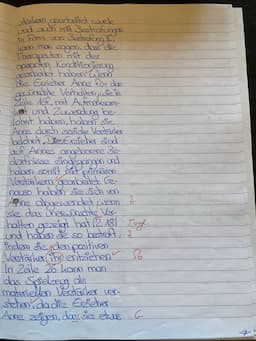 stärkern gearbeitet wurde
und auch mit Bestrafungen
in Form von Bestrafung II,
kann man sagen, dass die
Therapeuten mit der
operanten Konditionierung
gearbeitet haben. Wenn
die Erzieher Anne für das
gewünschte Verhalten, wie in
Zeile 16f, mit Aufmerksam-
und Zuwendung be-
lohnt haben, haben sie
Anne durch soziale Verstärker
belohnt. Die Erzieher sind
auf Annes angeborene Be-
dürfnisse eingegangen und
haben somit mit primären
Verstärkern gearbeitet. Ge-
nauso haben sie sich von
Anne abgewendet, wenn
sie das unerwünschte Ver-
halten gezeigt hat (Z. 18)
und haben sie so bestraft,
indem sie den positiven
Verstärker ihr entziehen
In Zeile 26 kann man
das Spielzeug als
materiellen Verstärker ver-
stehen, da die Erzieher
Anne zeigen, das sie etwas